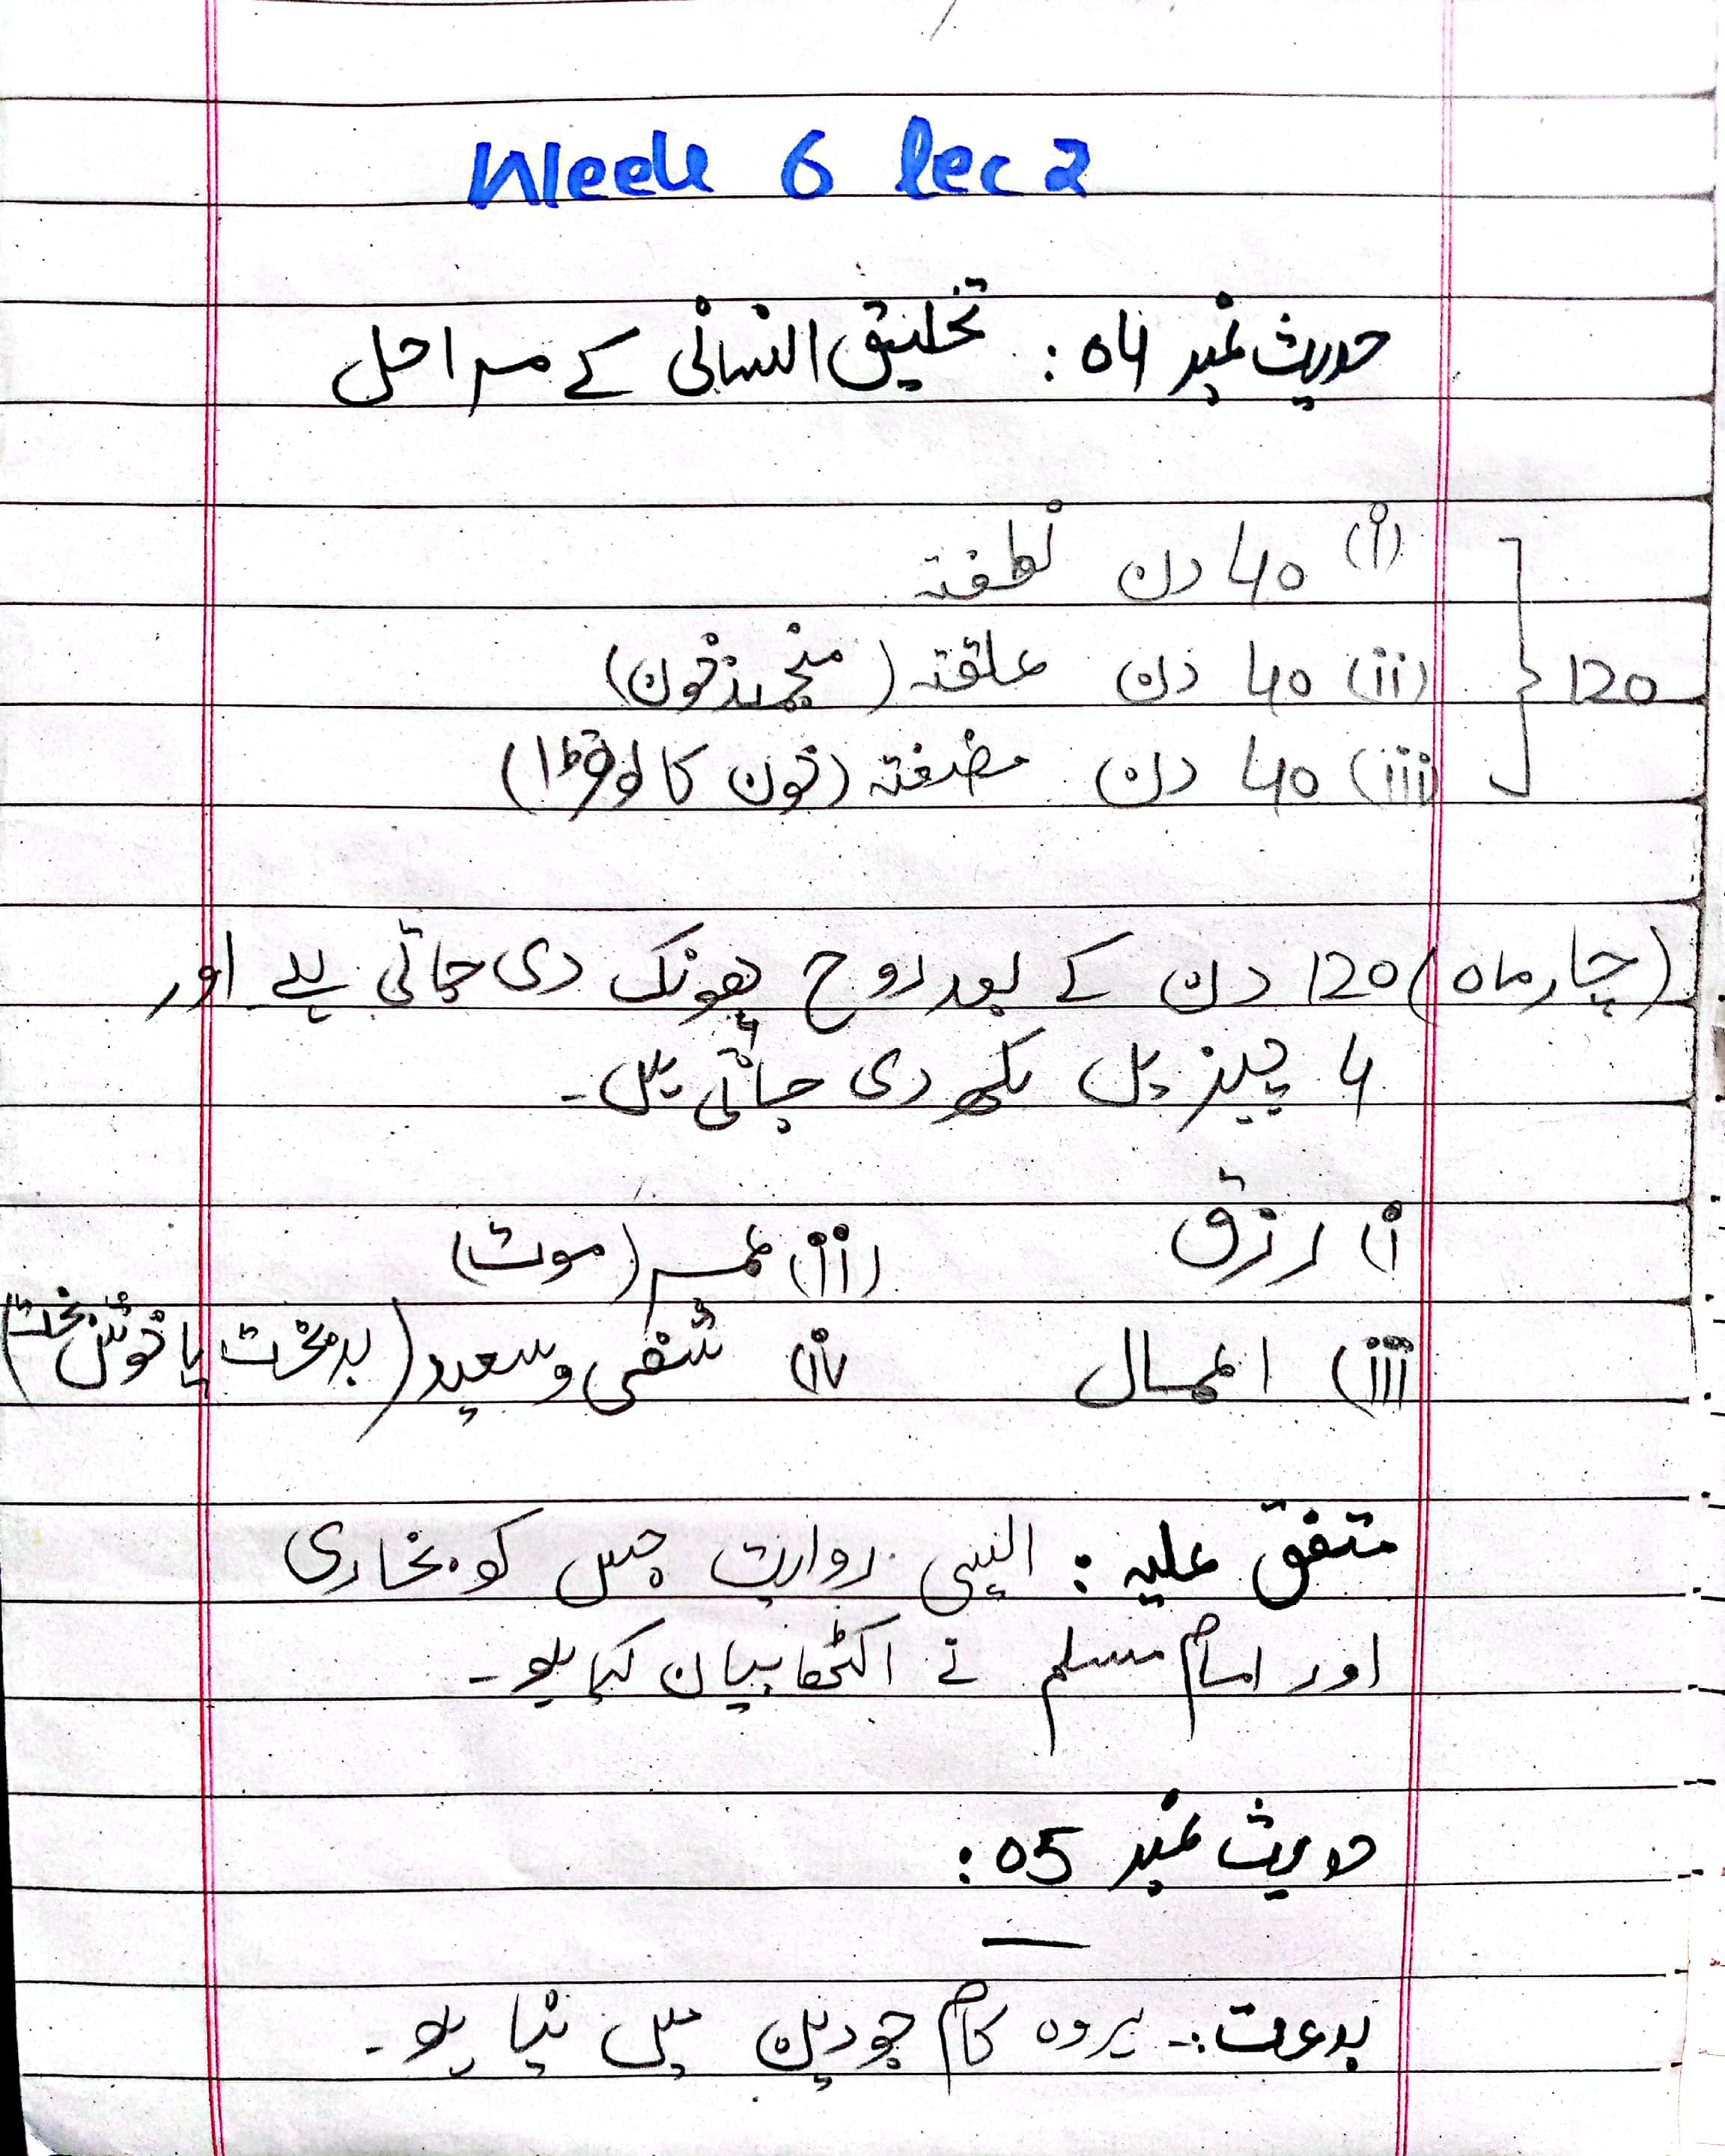 Week 6 lec 2
حدیث نمبر 04: تخلیق انسانی کے مراحل
(i) 40 دن نطفتہ
(ii) 40 دن علقتہ (منجمند خون)
120
(iii) 40 دن مضغتہ (خون کا لوتھڑا)
(چار ماہ) 120 دن کے بعد روح پھونک دی جاتی ہے اور
4 چیزیں لکھ دی جاتی ہیں۔
i) رزق (ii) عمر (موت)
iii) اعمال iv) شقی و سعید (بدبخت یا خوش بخت)
متفق علیہ: ایسی روایت جس کو بخاری
اور امام مسلم نے اکٹھا بیان کیا ہو۔
حدیث نمبر 05:
بدعت:۔ ہر وہ کام جو دین میں نیا ہو۔